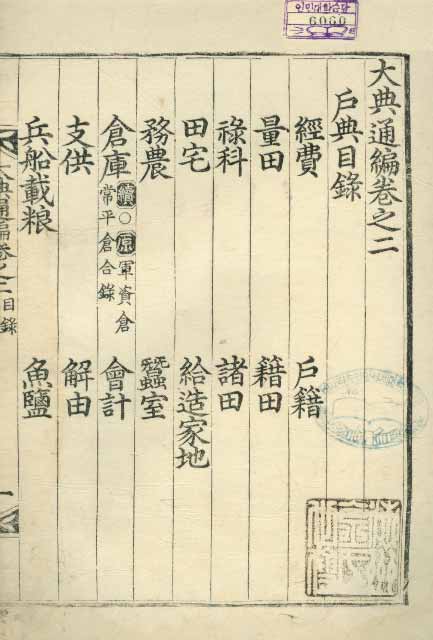 인민대학습당
6060
大典通編卷之二
戶典目錄
經費 戶籍
量田 籍田
祿科 諸田
田宅 給造家地
務農 蠶室
倉庫 續○原軍資倉常平倉合錄 會計
支供 解由
兵船載粮 魚鹽
大典通編卷之二 目錄 一